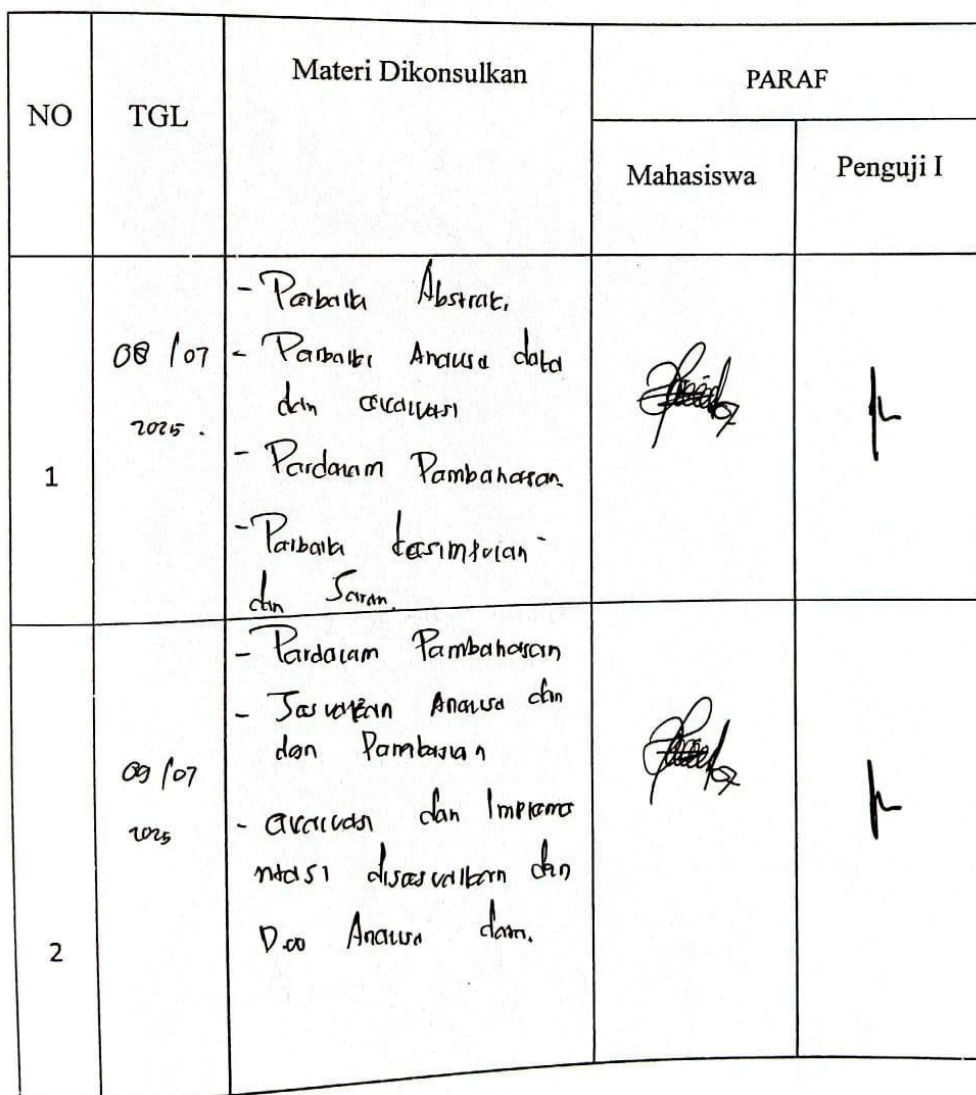 NO
TGL
Materi Dikonsulkan
PARAF
Mahasiswa
Penguji I
1
08/07
2025.
- Perbaiki Abstrak.
- Perbaiki Analisa data
dan evaluasi
- Perdalam Pembahasan.
- Perbaiki kesimpulan
dan Saran.
2
09/07
2025
- Perdalam Pembahasan
- Sesuaikan Analisa dan
dan
- evaluasi dan Impleme
ntasi disesuaikan dan
Analisa